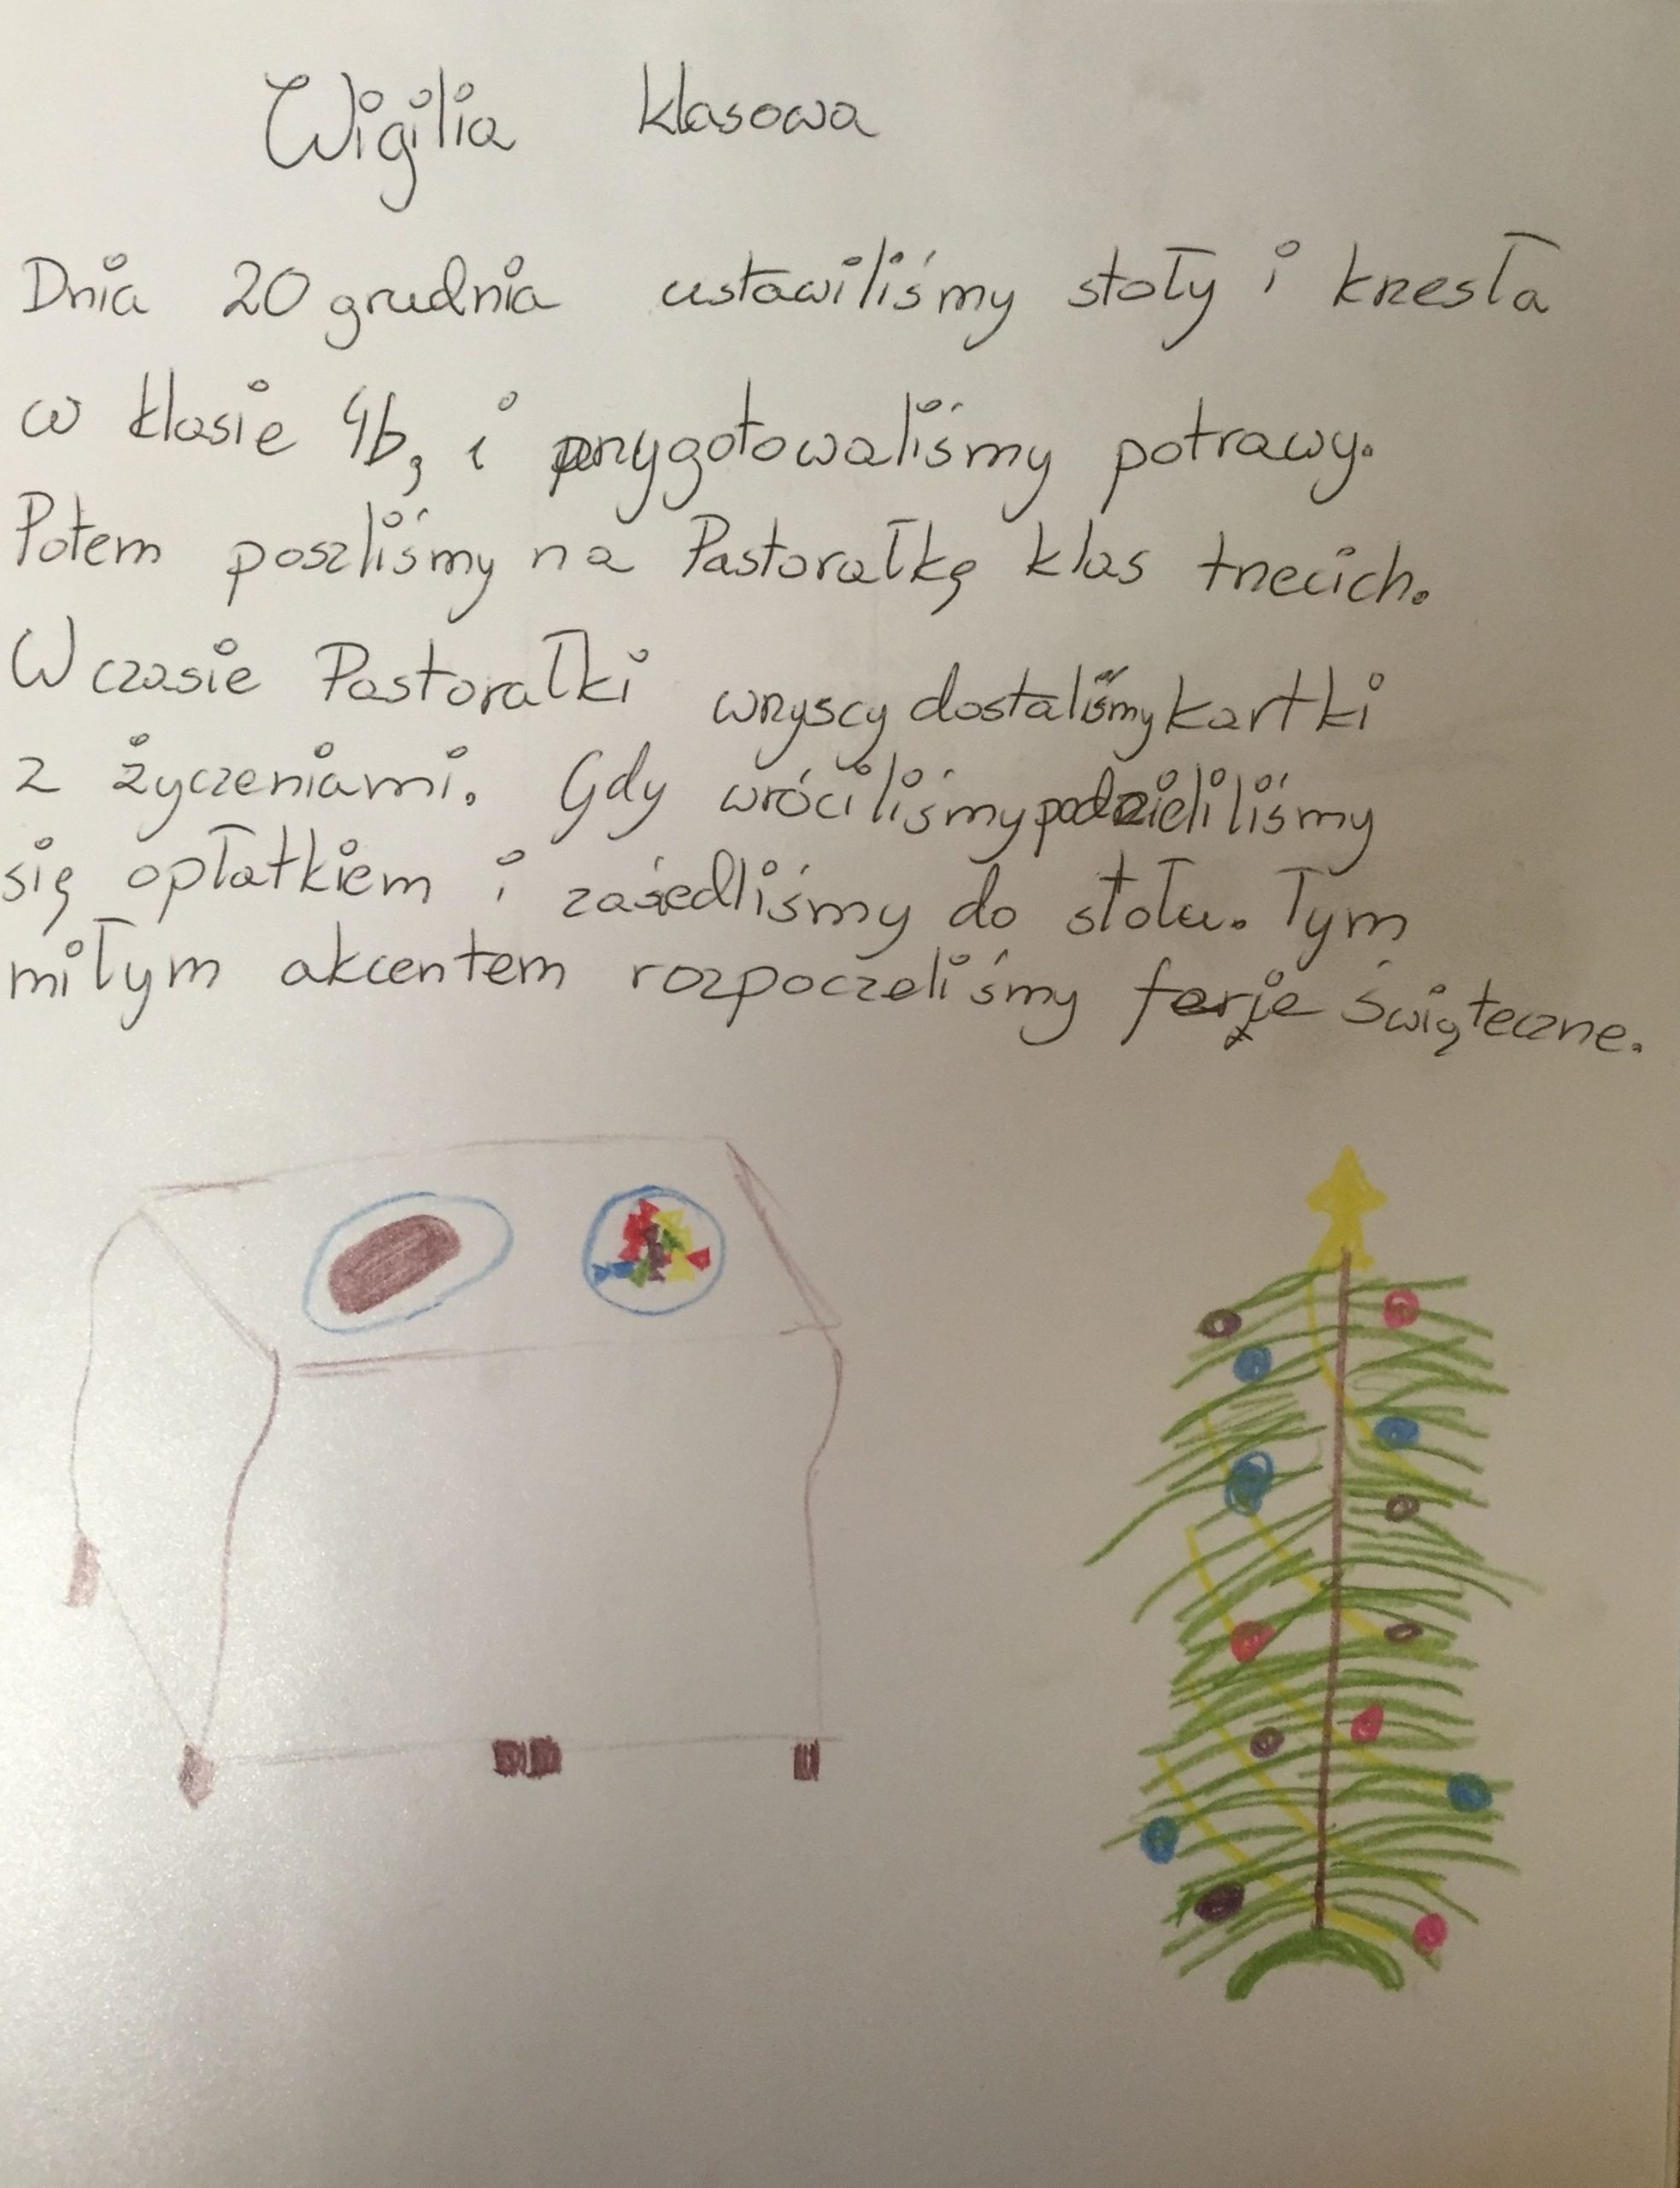 Wigilia klasowa
Dnia 20 grudnia ustawiliśmy stoły i krzesła
w klasie 4b, i przygotowaliśmy potrawy.
Potem poszliśmy na Pastorałkę klas trzecich.
W czasie Pastorałki wszyscy dostaliśmy kartki
z życzeniami. Gdy wróciliśmy podzieliliśmy
się opłatkiem i zasiedliśmy do stołu. Tym
miłym akcentem rozpoczeliśmy ferje świąteczne.